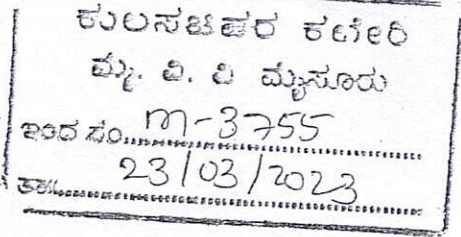 ಕುಲಸಚಿವರ ಕಛೇರಿ
ಮೈ. ವಿ. ವಿ ಮೈಸೂರು
ಇಂದ ಸಂ. m-3755
ತಾ. 23/03/2023